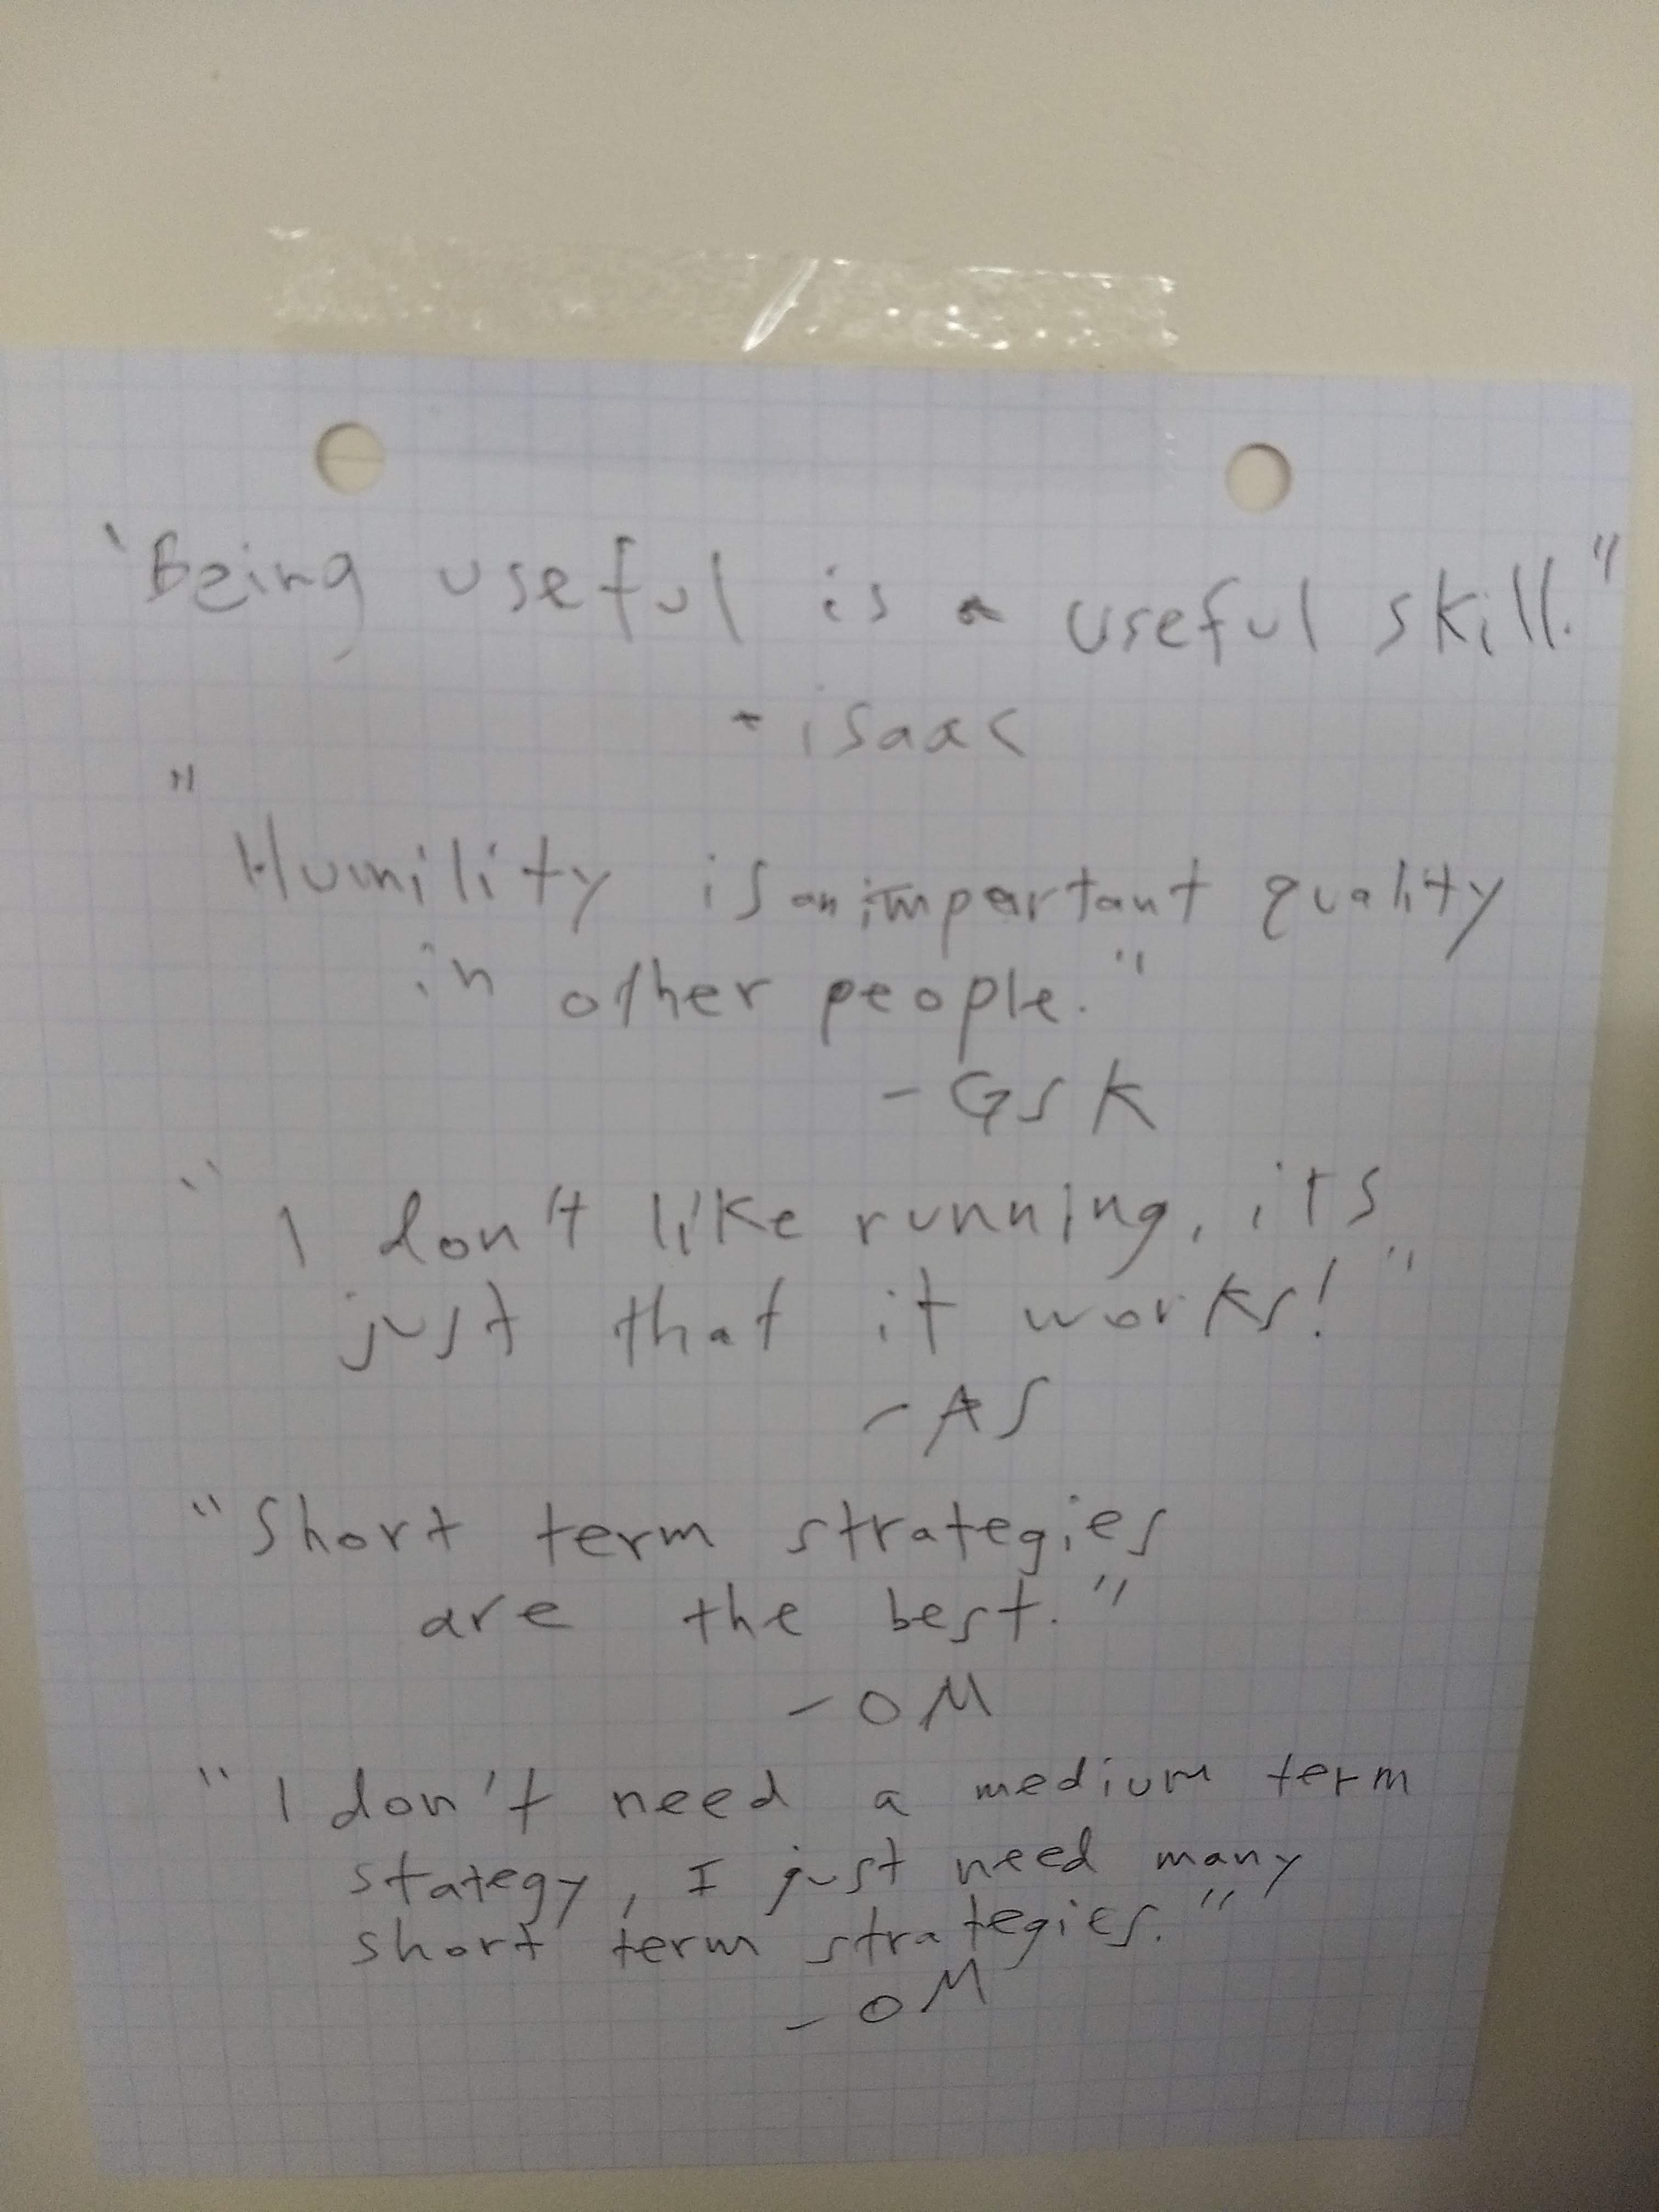 "Being useful is a useful skill."
- isaac
"Humility is an important quality
in other people."
- GSK
"I don't like running, its
just that it works!"
- AS
"Short term strategies
are the best."
- OM
"I don't need a medium term
stategy, I just need many
short term strategies."
- OM